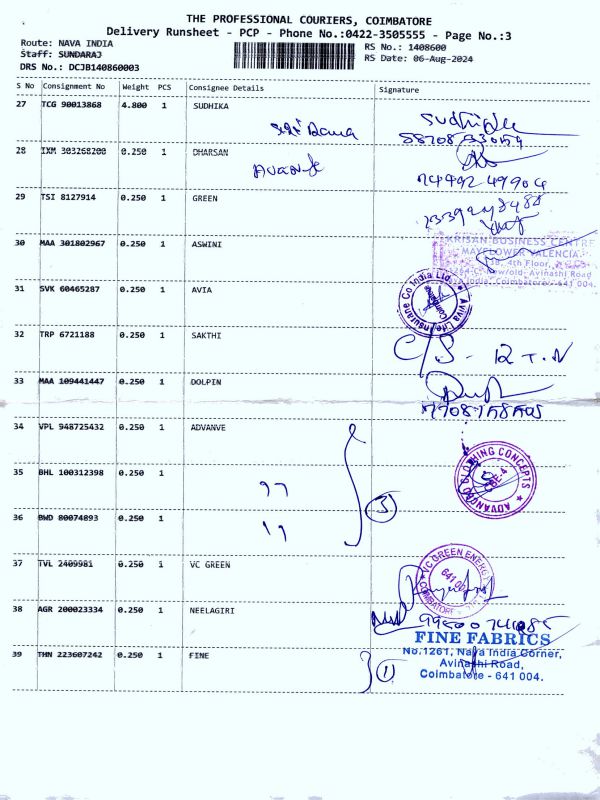 THE PROFESSIONAL COURIERS, COIMBATORE
Delivery Runsheet - PCP - Phone No.:0422-3505555 - Page No.:3
Route: NAVA INDIA
RS No.: 1408600
Staff: SUNDARAJ
RS Date: 06-Aug-2024
DRS No.: DCJB140860003
S No Consignment No Weight PCS Consignee Details Signature
27 TCG 90013868 4.800 1 SUDHIKA
28 IXM 303268200 0.250 1 DHARSAN
29 TSI 8127914 0.250 1 GREEN
30 MAA 301802967 0.250 1 ASWINI
KRISAN BUSINESS CENTRE
MAYFLOWER VALENCIA
4th Floor,
Avinashi Road
Coimbatore - 641 004.
31 SVK 60465287 0.250 1 AVIA
Aviva Life Insurance Co India Ltd.
32 TRP 6721188 0.250 1 SAKTHI
33 MAA 109441447 0.250 1 DOLPIN
34 VPL 948725432 0.250 1 ADVANVE
35 BHL 100312398 0.250 1
ADVANCED CLOTHING CONCEPTS
CBE-4
36 BWD 80074893 0.250 1
3
37 TVL 2409981 0.250 1 VC GREEN
VC GREEN ENERGY
COIMBATORE
38 AGR 200023334 0.250 1 NEELAGIRI
FINE FABRICS
No.1261, Nava India Corner,
Avinashi Road,
Coimbatore - 641 004.
39 THN 223607242 0.250 1 FINE
1